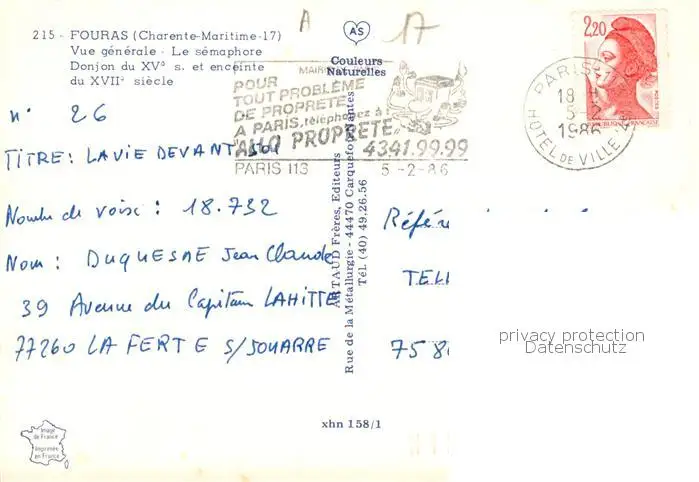 215 - FOURAS (Charente-Maritime-17)
Vue générale - Le sémaphore
Donjon du XV° s. et enceinte
du XVII° siècle
A
17
AS
Couleurs
Naturelles
MAIRIE
POUR
TOUT PROBLÈME
DE PROPRETÉ
A PARIS, téléphonez à
"ALLO PROPRETÉ"
43.41.99.99
PARIS 113
5-2-86
2,20
REPUBLIQUE FRANÇAISE
PARIS
18 H
5-2
1986
HOTEL DE VILLE
n° 26
TITRE: LA VIE DEVANT SOI
Nombre de voix : 18.732
Nom : DUQUESNE Jean Claude
39 Avenue du Capitain LAHITTE
77260 LA FERTE S/JOUARRE
ARTAUD Frères, Editeurs
Rue de la Métallurgie - 44470 Carquefou-Nantes
Tél. (40) 49.26.56
Référ
TELL
75 8
privacy protection
Datenschutz
xhn 158/1
Image
de France
Imprimée
en France